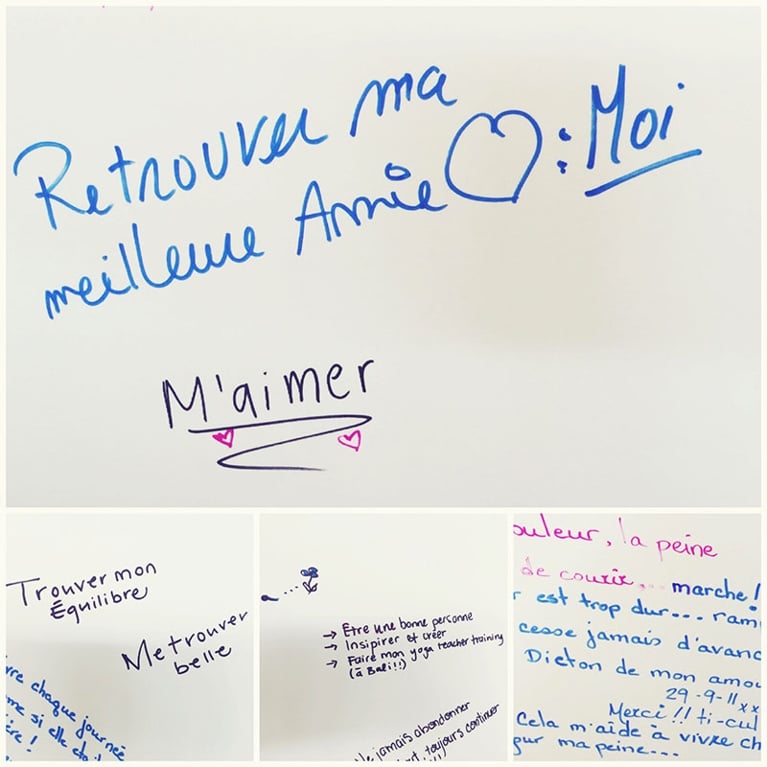 Retrouver ma
meilleure Annie ♡ : Moi
M'aimer
Trouver mon
Équilibre
Me trouver
belle
vre chaque journée
me si elle éta
ère !
→ Être une bonne personne
→ Insipirer et créer
→ Faire mon yoga teacher training
(à Bali!!)
Ne jamais abandonner
rt, toujours continuer
ouleur, la peine
de courir... marche!
r est trop dur... ram
cesse jamais d'avanc
Dicton de mon amou
29-9-11 xx
Merci !! ti-cul
Cela m'aide à vivre ch
our ma peine...